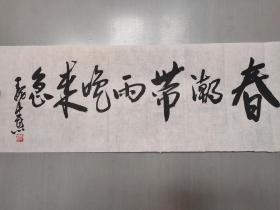 春潮带雨晚来急